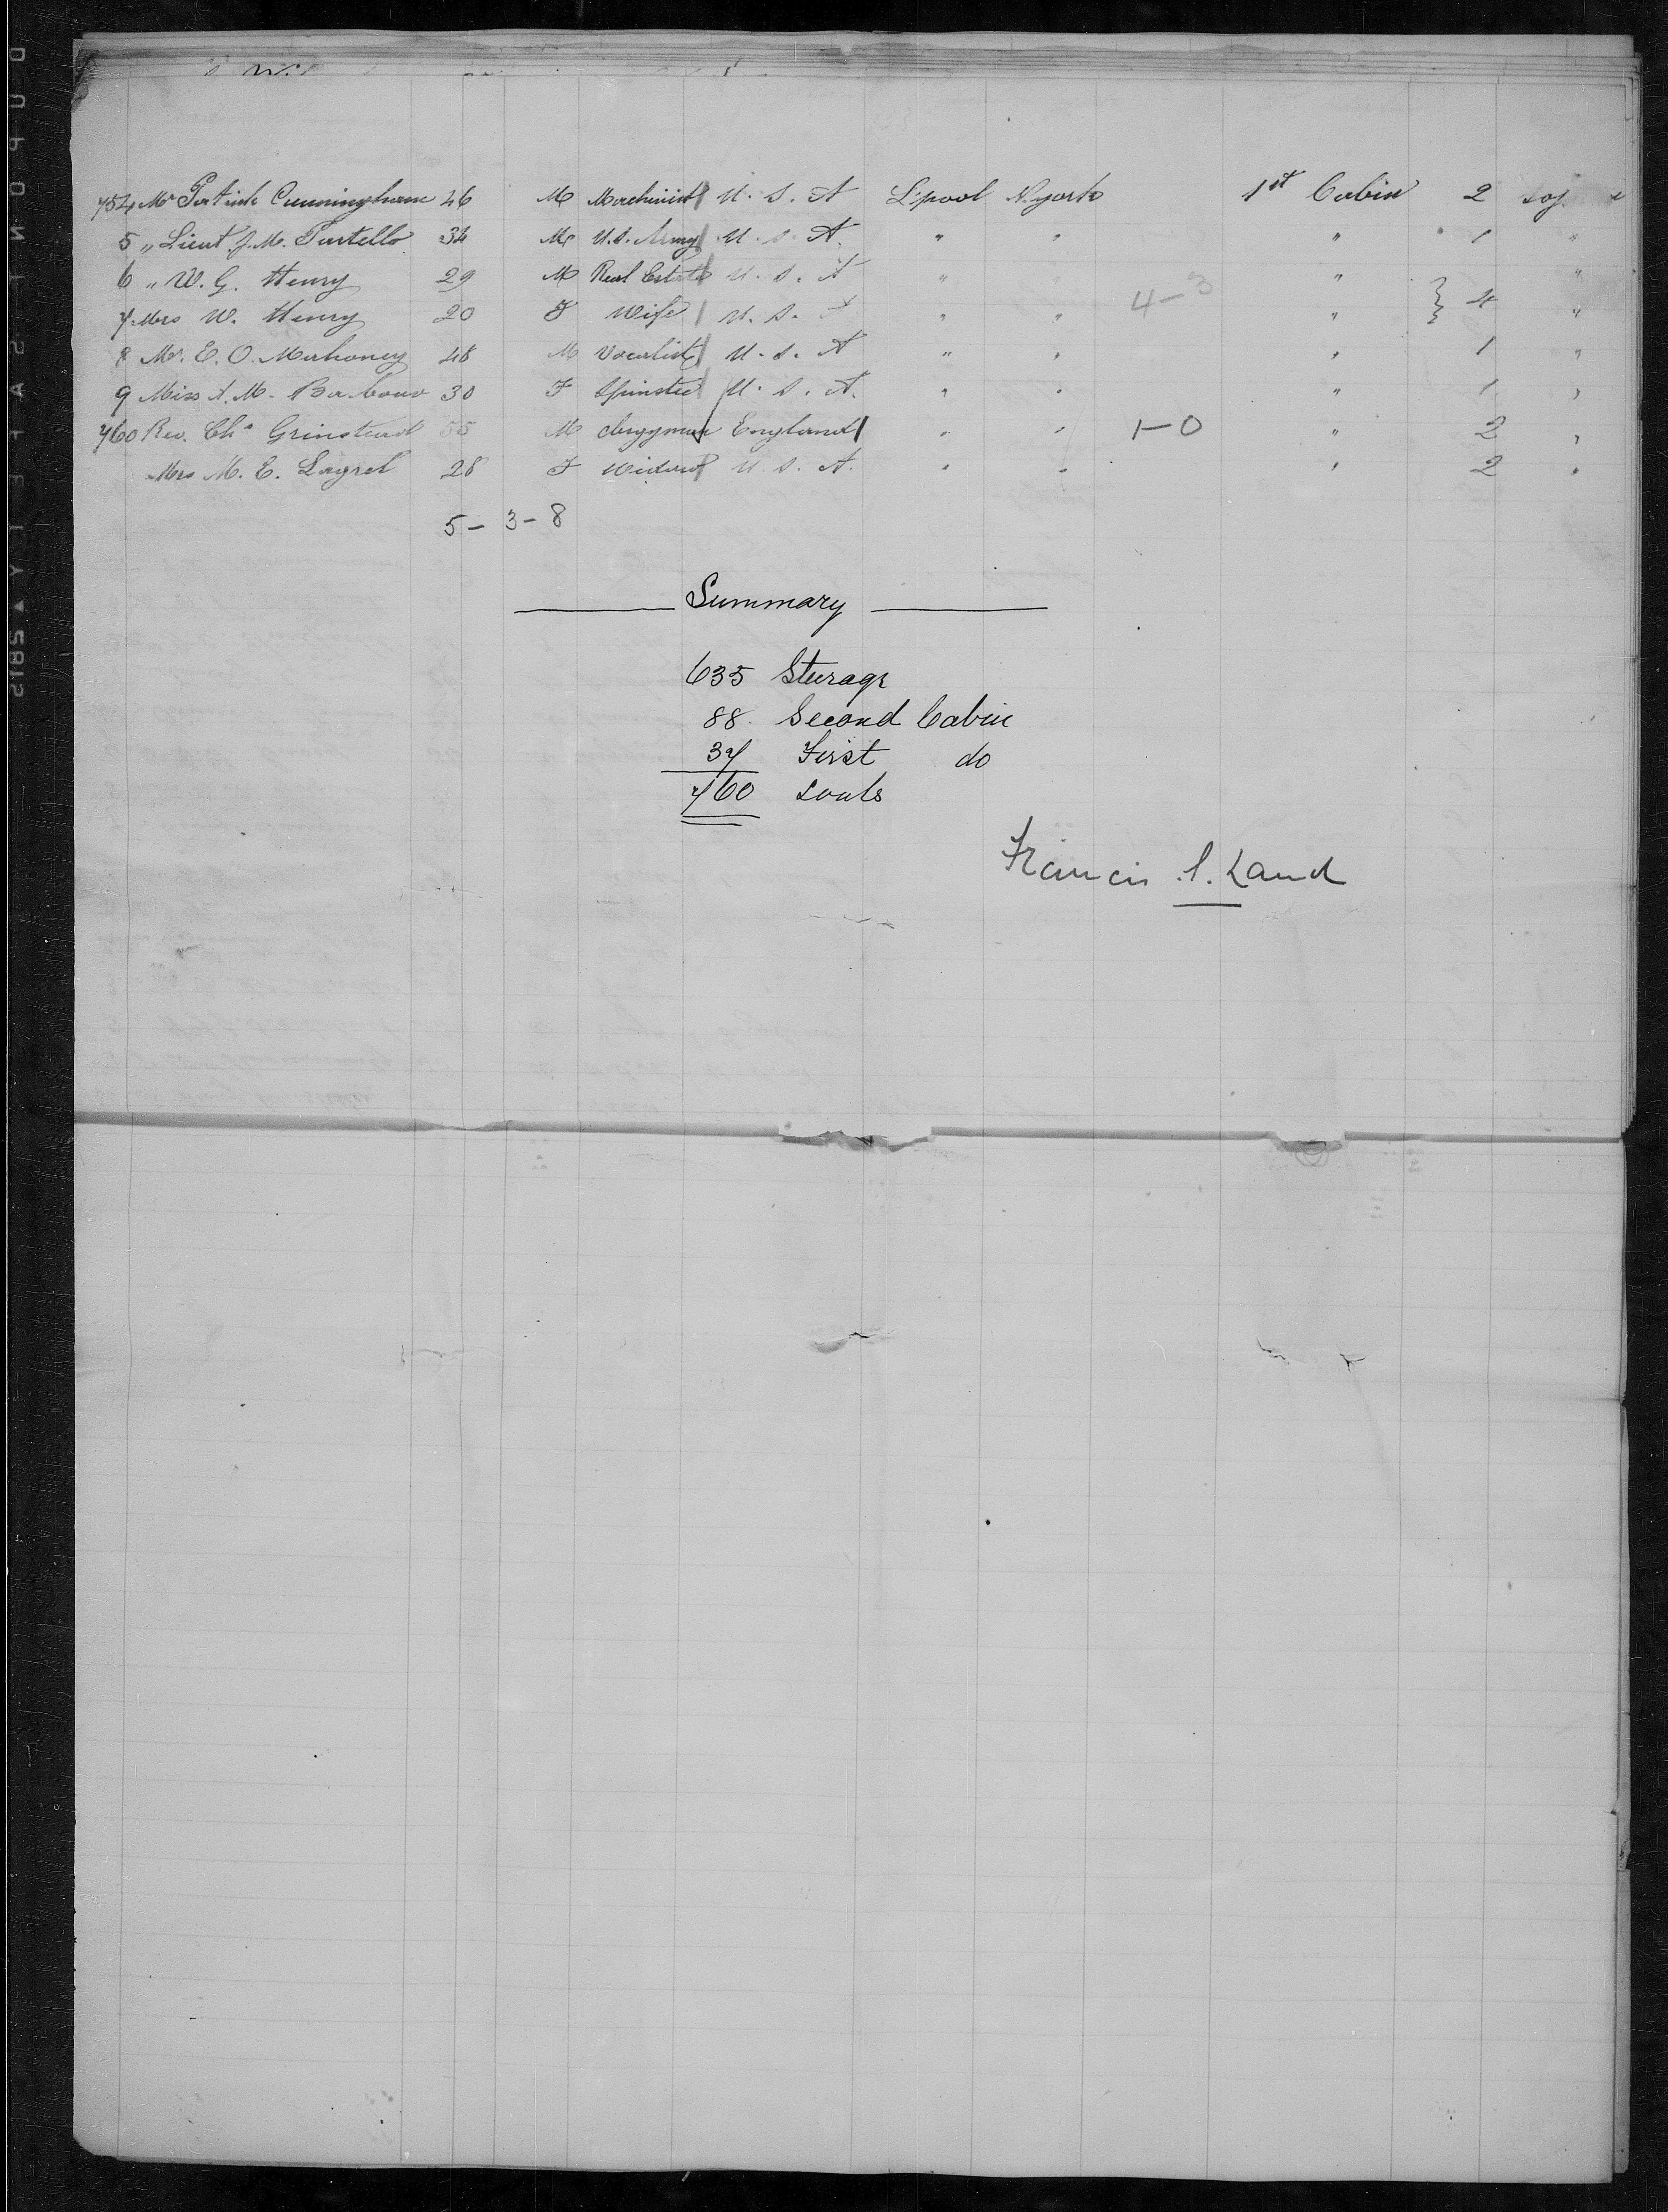 754 Mr Patrick Cunningham 46 M Machinist U. S. A L'pool N. york 1st Cabin 2
5 " Lieut J. M. Partello 34 M U.S. Army U. S. A. " " " 1 "
6 " W. G. Henry 29 M Real Estate U. S. A " " "
7 Mrs W. Henry 20 F Wife U. S. A " " 4-3 " } 4 "
8 Mr. E. O. Mahoney 48 M Vocalist U. S. A " " " 1 "
9 Miss A. M. Barbour 30 F Spinster U. S. A. " " " 1 "
760 Rev. Chs Grinstead 55 M clergyman England " " 1-0 " 2 "
Mrs M. E. 28 F Widow U. S. A. " " " 2 "
5 - 3 - 8
Summary
635 Steerage
88. Second Cabin
37 First do
760 souls
Francis S. Land